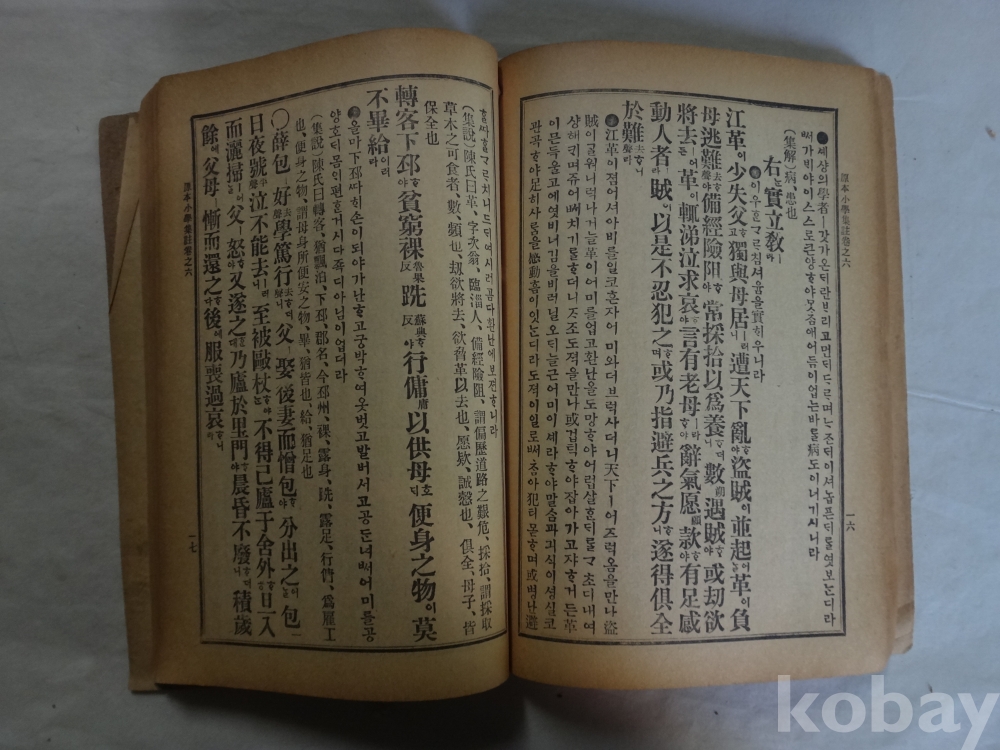 原本小學集註卷之六
一六
●세상의學者ㅣ갓가온ᄃᆡ란ᄇᆞ리고먼ᄃᆡ드르며ᄂᆞ즌ᄃᆡ이셔놉흔ᄃᆡ를엿보ᄂᆞᆫ디라
ᄡᅥ가ᄇᆡ야이스스로ᄅᆞᆯᄒᆞ야ᄆᆞᄎᆞᆷ애어듬이업ᄂᆞᆫ바ᄅᆞᆯ病도이녀기시니라
(集解)病、患也
右ᄂᆞᆫ實立敎ㅣ라
●이우흔ᄀᆞᄅᆞ침셔욤을實히우니라
江革이少失父ᄒᆞ고獨與母居ㅣ러니遭天下亂ᄒᆞ야盜賊이並起ᄒᆞ야革이負
母逃難去聲ᄒᆞ야備經險阻ᄒᆞ야常採拾以爲養ᄒᆞ더니數朔遇賊ᄒᆞ야或劫欲
將去ㅣ어든革이輒涕泣求哀ᄒᆞ야言有老母ㅣ라ᄒᆞ야辭氣愿願款ᄒᆞ야有足感
動人者ㅣ라賊이以是不忍犯之ᄒᆞ며或乃指避兵之方ᄒᆞ니遂得俱全
於難去聲ᄒᆞ니라
●江革이져머셔아비를일코혼자어미와더브러사더니天下ㅣ어즈럭옴을만나盜
賊이ᄀᆞᆯ워니러나거ᄂᆞᆯ革이어미를업고환난을도망ᄒᆞ야어렴살ᄒᆞᆫᄃᆡ를ᄀᆞ초디내여
샹해키며쥬어ᄡᅥ치기를ᄒᆞ더니ᄌᆞ조도적을만나或겁틱ᄒᆞ야잡아가고쟈ᄒᆞ거든革
이믄득울고에엿비너김을비러닐오ᄃᆡ늘근어미이셰라ᄒᆞ야말ᄉᆞᆷ과긔식이셩실코
관곡ᄒᆞ야足히사ᄅᆞᆷ을感動홈이잇ᄂᆞᆫ디라도적이일로ᄡᅥᄎᆞᆷ아犯티몯ᄒᆞ며或병난避
ᄒᆞᆯᄯᅡᄒᆞᆯᄀᆞᄅᆞ치니드듸여서러곰다환난에보젼ᄒᆞ니라
(集說)陳氏曰革、字次翁、臨淄人、備經險阻、謂偏歷道路之艱危、採拾、謂採取
草木之可食者、數、頻也、劫欲將去、欲脅革以去也、愿欵、誠慤也、俱全、母子、皆
保全也
轉客下邳ᄒᆞ야貧窮裸魯果反跣蘇典反ᄒᆞ야行傭庸以供母ᄒᆞ되便身之物이莫
不畢給이러라
●올마下邳ᄯᅡ히손이되야가난ᄒᆞ고궁박ᄒᆞ여옷벗고발버서고공ᄃᆞᆫ녀ᄡᅥ어미를공
양호ᄃᆡ몸인편ᄒᆞᆫ거시다죡디아님이업더라
(集說)陳氏曰轉客、猶飄泊、下邳、郡名、今邳州、裸、露身、跣、露足、行傭、爲雇工
也、便身之物、謂母身所便安之物、畢、猶皆也、給、猶足也
○薛包ㅣ好去聲學篤行去聲ᄒᆞ더니父ㅣ娶後妻而憎包ᄒᆞ야分出之어ᄂᆞᆯ包ㅣ
日夜號平聲泣不能去ㅣ러니至被毆杖ᄒᆞ야不得已廬于舍外ᄒᆞ야旦入
而灑掃ㅣ어ᄂᆞᆯ父ㅣ怒ᄒᆞ야又遂之ᄒᆞᆫᄃᆡ乃廬於里門ᄒᆞ야晨昏不廢ᄒᆞ더니積歲
餘에父母ㅣ慚而還之ᄒᆞ다後에服喪過哀ᄒᆞ니라
原本小學集註卷之六
一七
kobay